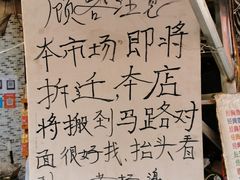 顾客注意
本市场即将
拆迁,本店
将搬到马路对
面很好找、抬头看